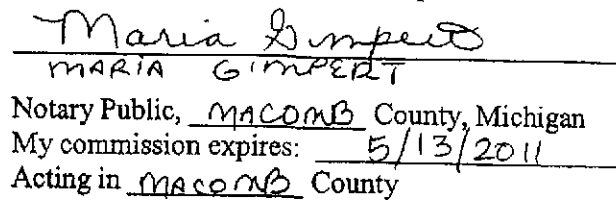 Maria Gimpert
MARIA GIMPERT
Notary Public, MACOMB County, Michigan
My commission expires: 5/13/2011
Acting in MACOMB County